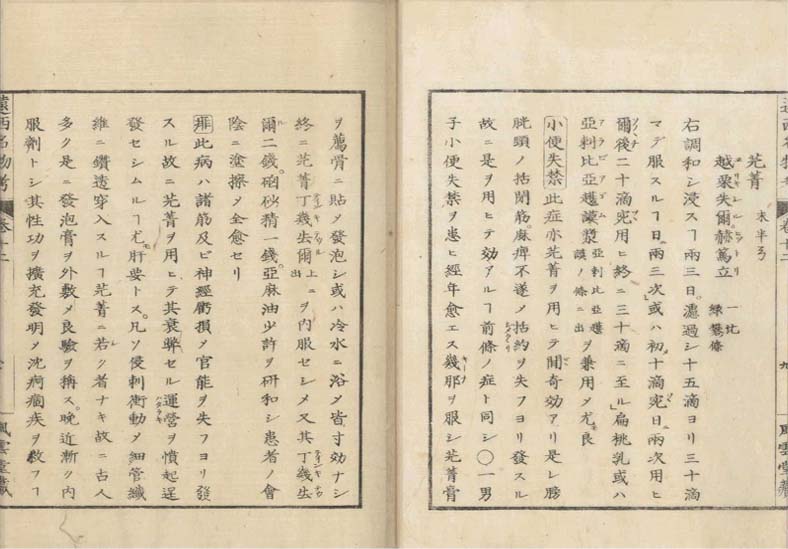 芫菁 末半弓
越栗失爾。赫篤立 一比
右調和シ浸スヿ兩三日。濾過シ十五滴ヨリ三十滴
マデ服スルヿ日ニ兩三次或ハ初十滴宛日ニ兩次用ヒ
爾後二十滴宛用ヒ終ニ三十滴ニ至ル扁桃乳或ハ
亞剌比亞護謨漿 亞剌比亞護謨ノ條ニ出 ヲ兼用メ尤良
小便失禁 此症亦芫菁ヲ用ヒテ間奇効アリ是レ膀
胱頭ノ括閉筋。麻痺不遂メ括約ヲ失フヨリ發スル
故ニ是ヲ用ヒテ効アルヿ前條ノ症ト同シ〇一男
子小便失禁ヲ患ヒ經年愈エス幾那ヲ服シ芫菁膏
ヲ薦骨ニ貼メ發泡シ或ハ冷水ニ浴メ皆寸効ナシ
終ニ芫菁丁幾去爾 上ニ出 ヲ内服セシメ又其丁幾去
爾二錢。硇砂精一錢。亞麻油少許ヲ研和シ患者ノ會
陰ニ塗擦メ全愈セリ
痱 此病ハ諸筋及ビ神經衝損メ官能ヲ失フヨリ發
スル故ニ芫菁ヲ用ヒテ其衰弊セル運營ヲ憤起逞
發セシムルヿ尤モ肝要トス。凡ソ侵刺衝動メ細管纖
維ニ鑽透穿入スルヿ芫菁ニ若ク者ナキ故ニ古人
多ク是ニ發泡膏ヲ外敷メ良驗ヲ稱ス。晩近漸ク内
服劑トシ其性功ヲ擴充發明メ沈痾痼疾ヲ救フヿ
遠西名物考 卷十二
風雲堂藏